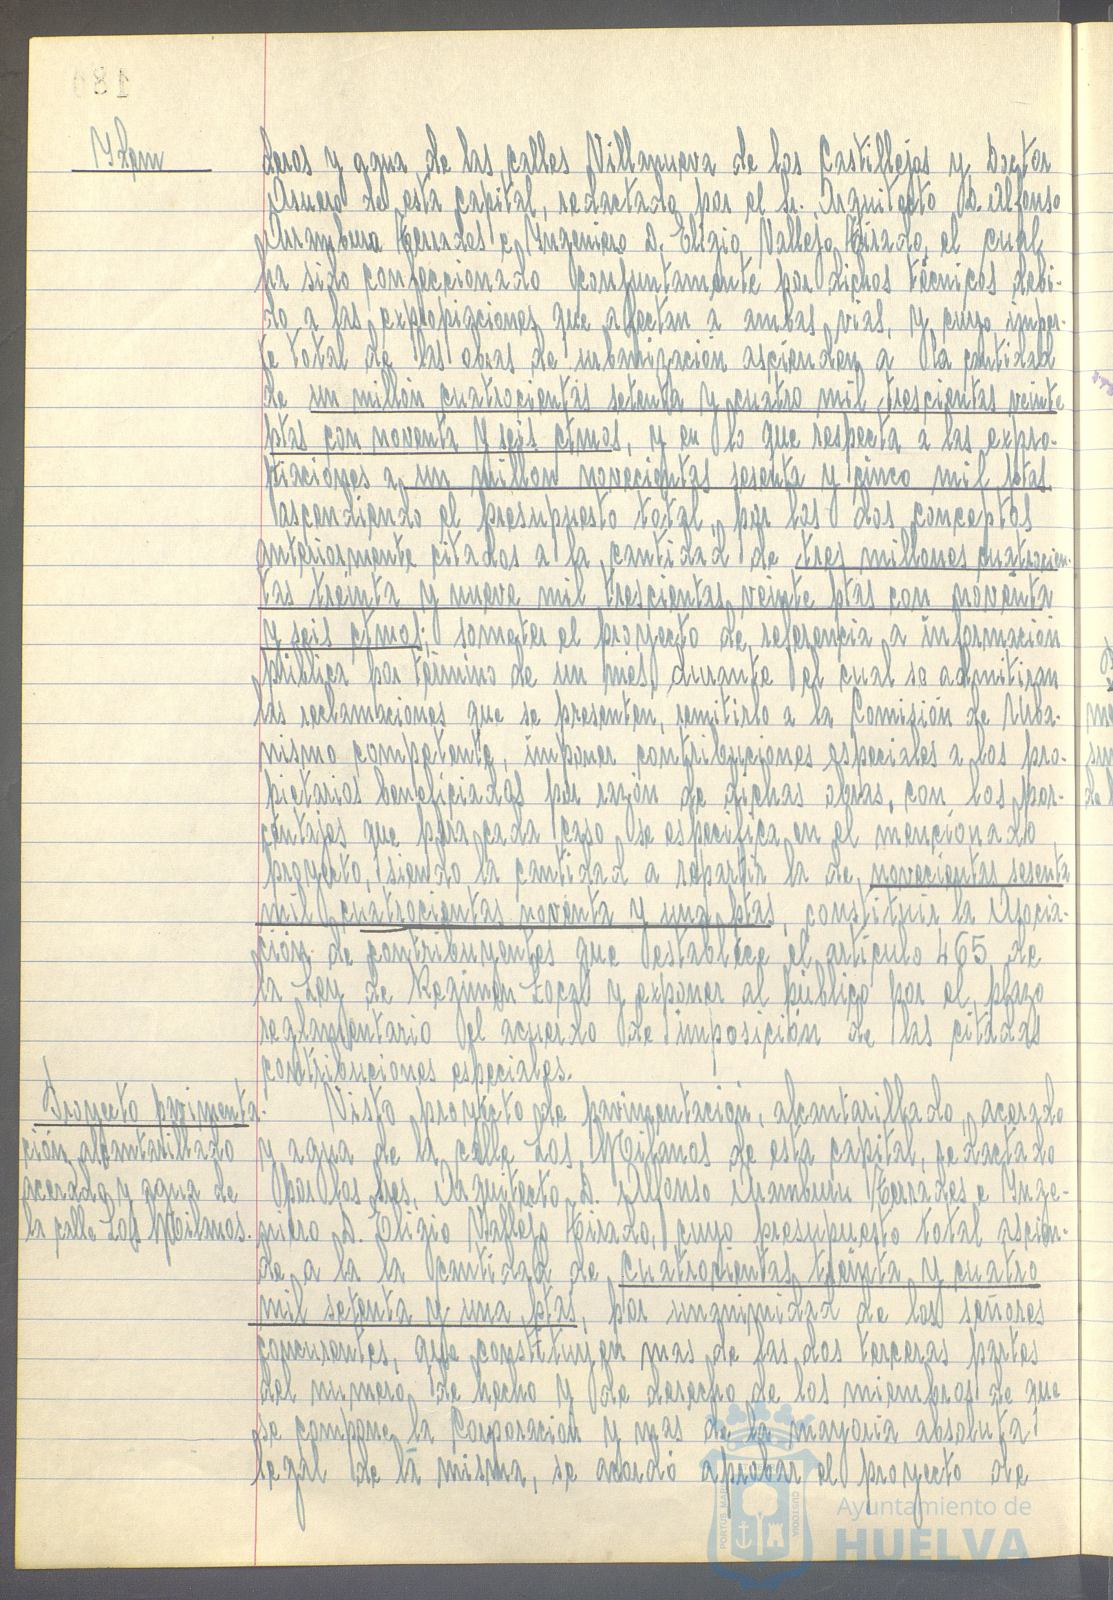 Idem
deros y agua de las calles Villanueva de los Castillejos y Doctor
de esta capital, redactado por el Sr. Arquitecto D. Alfonso
Aramburu Terrades e Ingeniero D. Eligio Vallejo Tirado, el cual
ha sido confeccionado conjuntamente por dichos técnicos debi-
do a las expropiaciones que afectan a ambas vias, y cuyo impor-
te total de las obras de urbanización ascienden a la cantidad
de un millón cuatrocientas setenta y cuatro mil trescientas veinte
ptas con noventa y seis ctmos, y en lo que respecta a las expro-
piaciones a un millon novecientas sesenta y cinco mil ptas.
ascendiendo el presupuesto total, por los dos conceptos
anteriormente citados a la cantidad de tres millones cuatrocien-
tas treinta y nueve mil trescientas veinte ptas con noventa
y seis ctmos; someter el proyecto de referencia a información
pública por término de un mes durante el cual se admitiran
las reclamaciones que se presenten, remitirlo a la Comisión de Urba-
nismo competente, imponer contribuciones especiales a los pro-
pietarios beneficiados por razón de dichas obras, con los por-
centajes que para cada caso se especifica en el mencionado
proyecto, siendo la cantidad a repartir la de novecientas sesenta
mil cuatrocientas noventa y una ptas, constituir la Asocia-
ción de contribuyentes que establece el artículo 465 de
la Ley de Regimen Local y exponer al público por el plazo
reglamentario el acuerdo de imposición de las citadas
contribuciones especiales.
Proyecto pavimenta-
ción, alcantarillado
acerado y agua de
la calle Los Milanos.
Visto proyecto de pavimentación, alcantarillado, acerado
y agua de la calle Los Milanos de esta capital, redactado
por los Sres. Arquitecto D. Alfonso Aramburu Terrades e Inge-
niero D. Eligio Vallejo Tirado, cuyo presupuesto total ascien-
de a la la cantidad de cuatrocientas treinta y cuatro
mil setenta y una ptas, por unanimidad de los señores
concurentes, que constituyen mas de las dos terceras partes
del numero de hecho y de derecho de los miembros de que
se compone la Corporación y mas de la mayoria absoluta
legal de la misma, se acordó aprobar el proyecto de
Ayuntamiento de
HUELVA